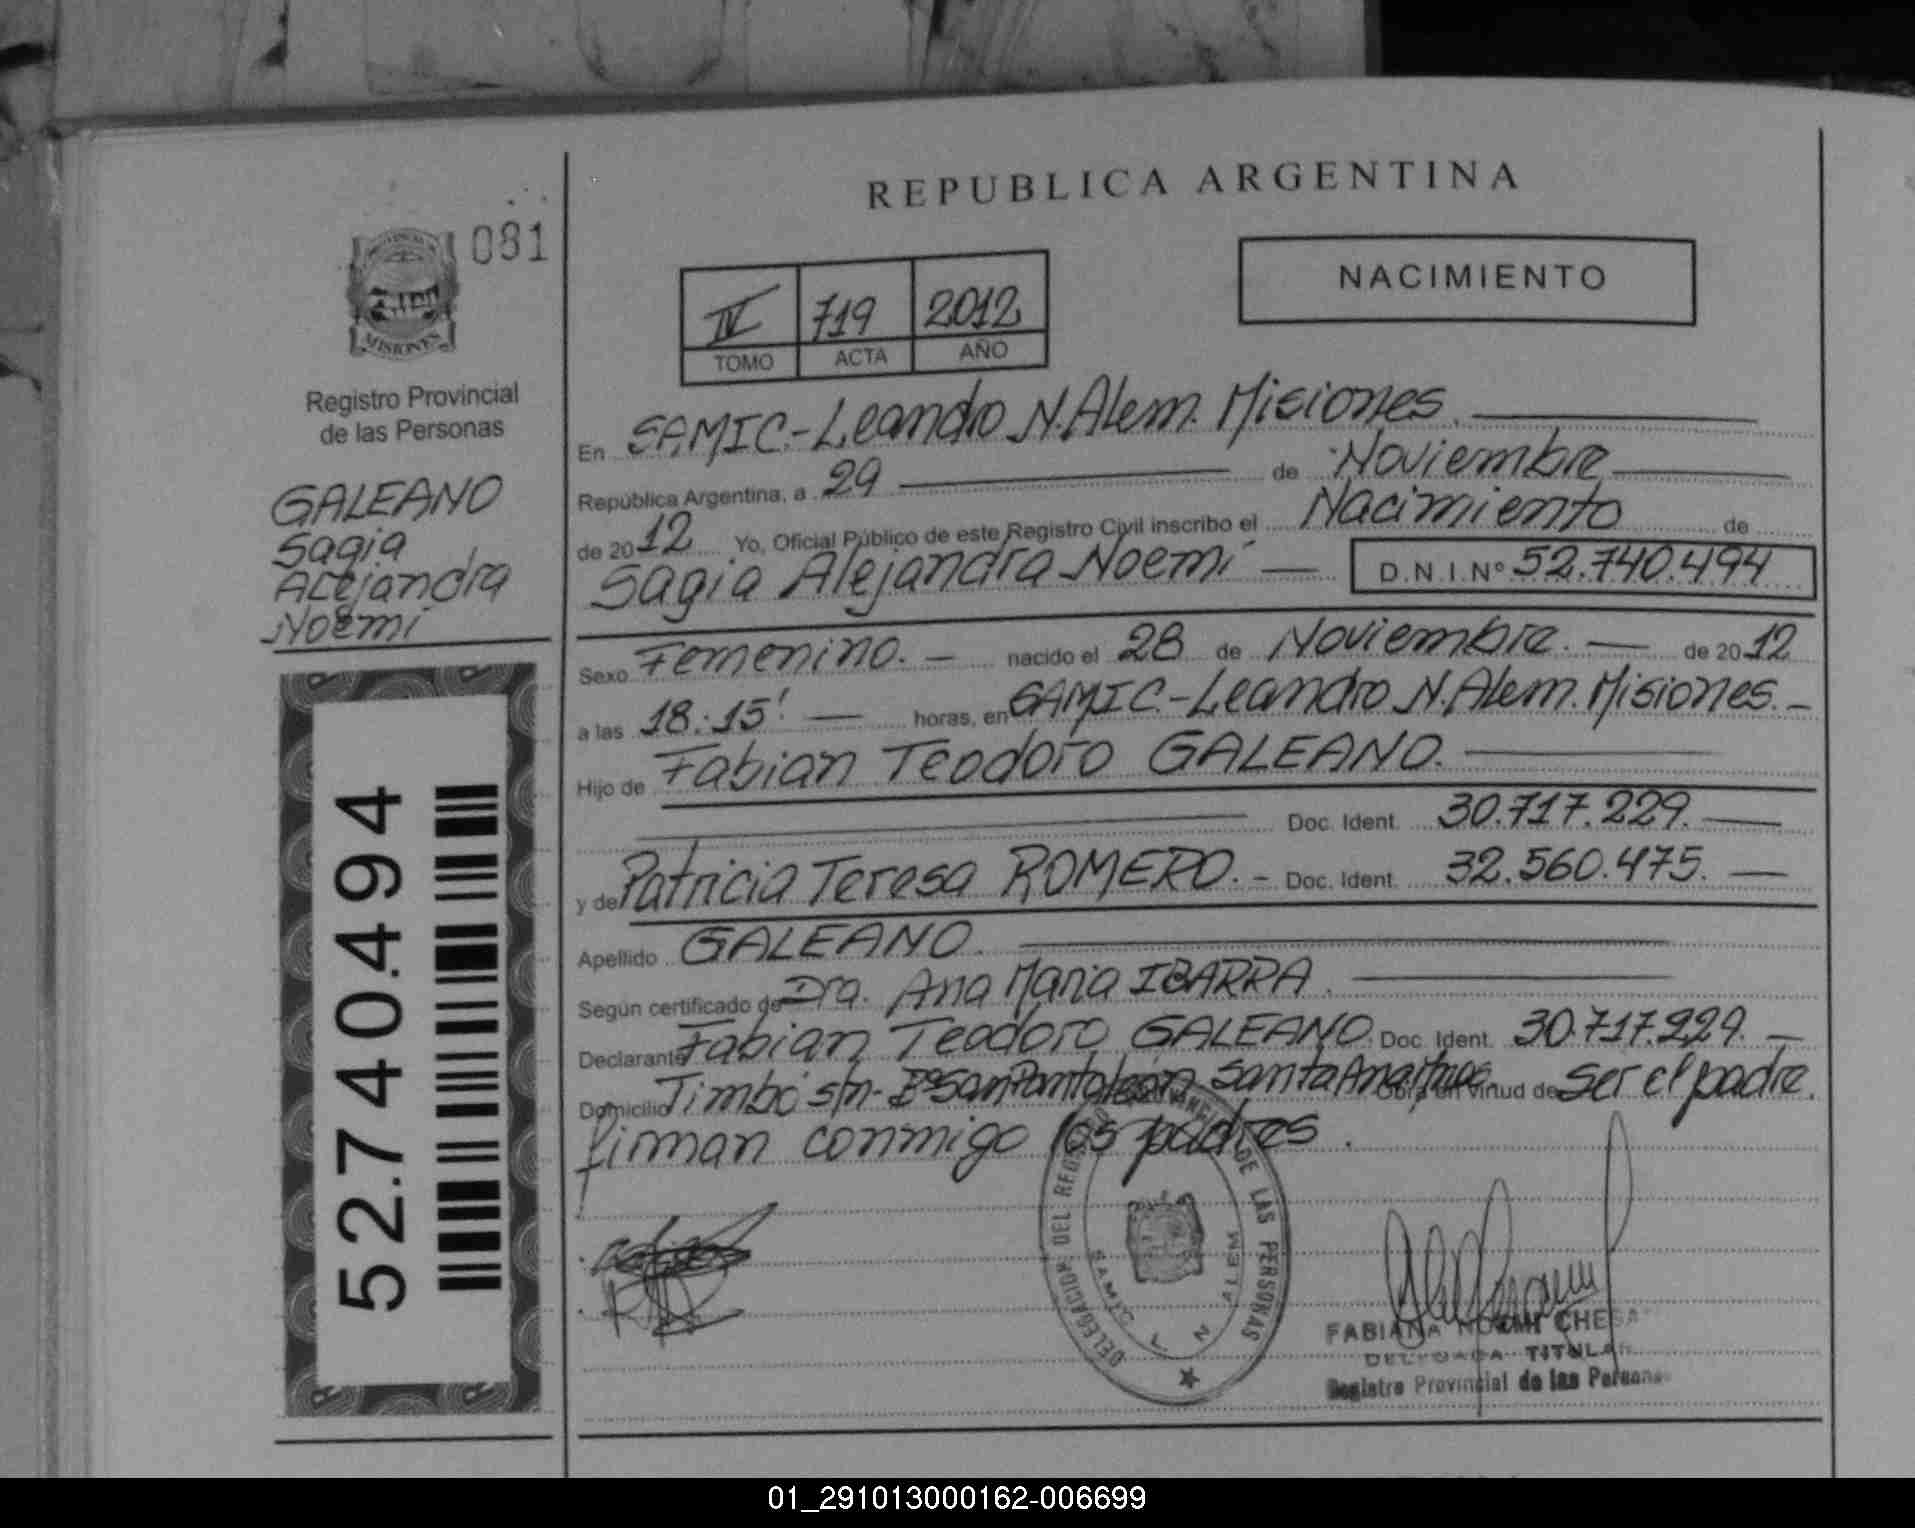 REPUBLICA ARGENTINA
081
NACIMIENTO
IV 719 2012
TOMO ACTA AÑO
MISIONES
Registro Provincial
de las Personas
GALEANO
Sagia
Alejandra
Noemí
52.740.494
En SAMIC.-Leandro N. Alem. Misiones.
República Argentina, a 29 de Noviembre
de 2012 Yo, Oficial Público de este Registro Civil inscribo el Nacimiento de
Sagia Alejandra Noemí — D.N.I.Nº 52.740.494
Sexo Femenino. — nacido el 28 de Noviembre. — de 2012
a las 18:15' — horas, en SAMIC.-Leandro N. Alem. Misiones. -
Hijo de Fabian Teodoro GALEANO.
Doc. Ident. 30.717.229. —
y de Patricia Teresa ROMERO. - Doc. Ident. 32.560.475. —
Apellido GALEANO.
Según certificado de Dra. Ana Maria IBARRA.
Declarante Fabian Teodoro GALEANO. Doc. Ident. 30.717.229. —
Domicilio Timbó s/n- Bº San Pantaleón Santa Ana, Mnes. Obra en virtud de ser el padre.
firman conmigo los padres.
DELEGACION DEL REGISTRO PROVINCIAL DE LAS PERSONAS
SAMIC L N ALEM
FABIANA NOEMI
DELEGADA TITULAR
Registro Provincial de las Personas
01_291013000162-006699